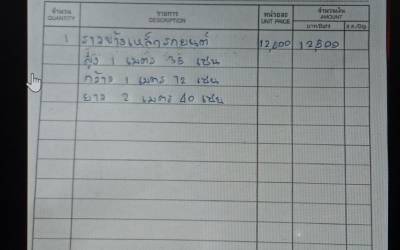 จำนวน รายการ หน่วยละ จำนวนเงิน
QUANTITY DESCRIPTION UNIT PRICE AMOUNT
บาท/Baht ส.ต./Stg.
1 ราวข้างเหล็กรถยนต์ 12,800 12,800
สูง 1 เมตร 35 เซ็น
กว้าง 1 เมตร 72 เซ็น
ยาว 2 เมตร 40 เซ็น